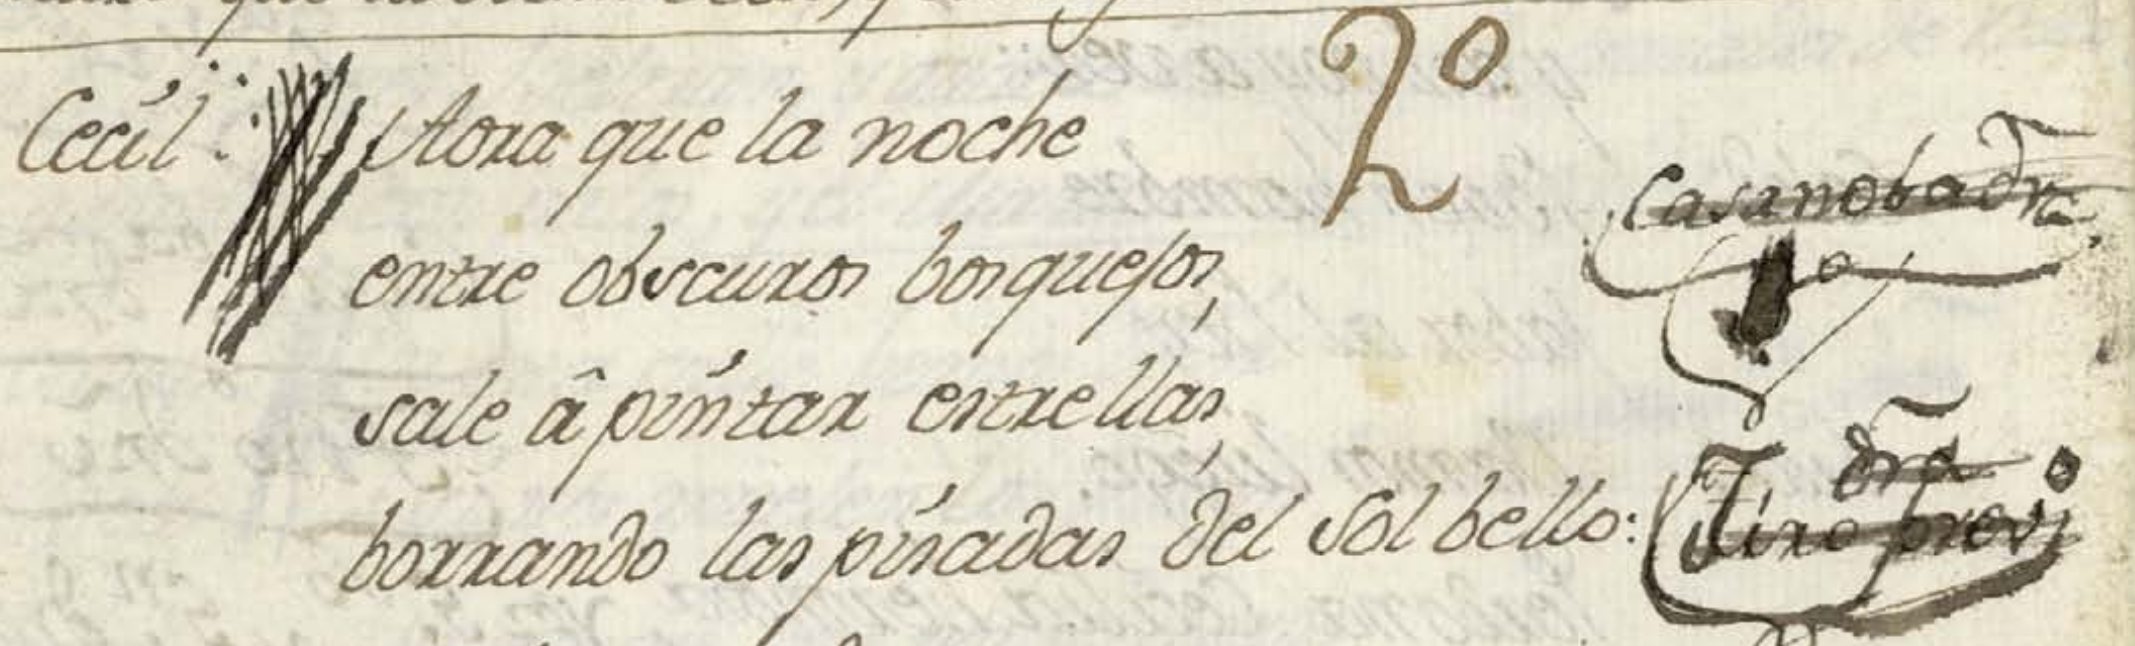 2º
Cecil: Aora que la noche
entre obscuros bosquejos,
sale â pintar estrellas,
borrando las pisadas del Sol bello:
Casanoba dra
dra
Tiro